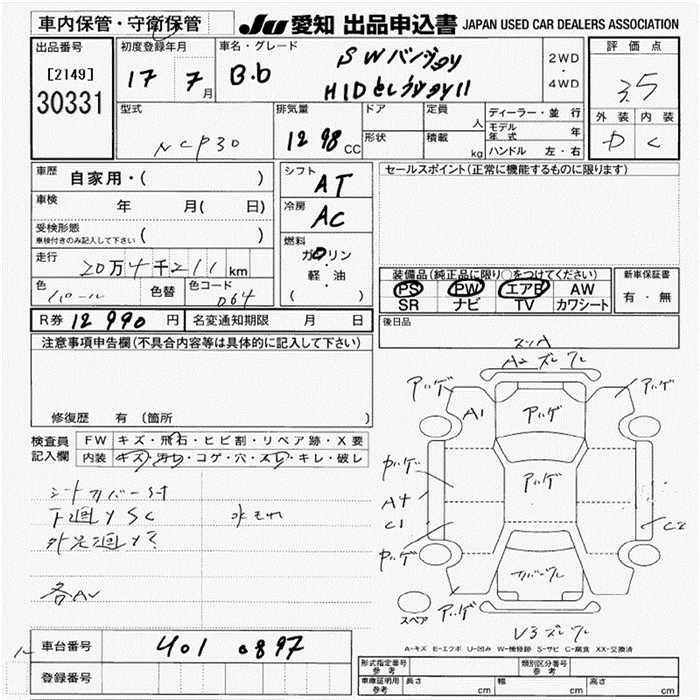 車内保管・守衛保管
JU 愛知 出品申込書 JAPAN USED CAR DEALERS ASSOCIATION
出品番号
[2149]
30331
初度登録年月
17 7月
車名・グレード
B.b
2WD
・
4WD
評価点
3.5
外装 内装
D C
型式
NCP30
排気量
1298 CC
ドア
形状
定員
人
積載
kg
ディーラー・並行
モデル年式 年
ハンドル 左・右
車歴
自家用・( )
車検
年 月( 日)
受検形態
車検付きのみ記入して下さい ( )
走行
20万4千211km
色
パール
色替
色コード
064
シフト
AT
冷房
AC
燃料
ガソリン
・
軽油
( )
セールスポイント(正常に機能するものに限ります)
装備品(純正品に限り○をつけてください)
PS PW エアB AW
SR ナビ TV カワシート
新車保証書
有・無
R券 12990 円
名変通知期限 月 日
後日品
注意事項申告欄(不具合内容等は具体的に記入して下さい)
修復歴 有 (箇所 )
検査員記入欄
FW キズ・飛石・ヒビ割・リペア跡・X要
内装 キズ・汚レ・コゲ・穴・スレ・キレ・破レ
シートカバー付
下廻りSC 水もれ
A1
A4
C1
C2
スペア
A-キズ E-エクボ U-凹み W-補修跡 S-サビ C-腐食 XX-交換済
車台番号 401 0897
登録番号
形式指定番号
参考
類別区分番号
参考
車庫証明用
参考
長さ cm
幅 cm
高さ cm